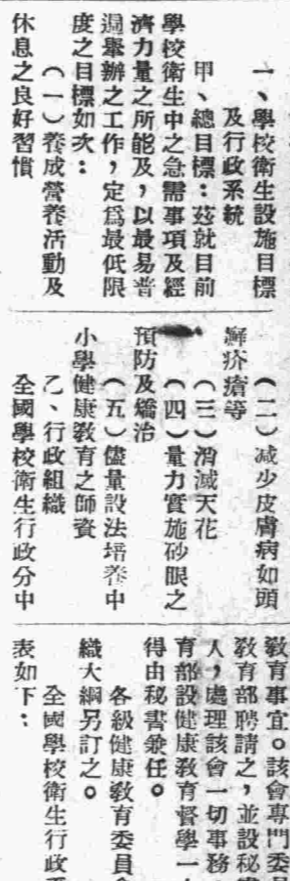 一、學校衛生設施目標
及行政系統
甲、總目標：茲就目前
學校衛生中之急需事項及經
濟力量之所能及，以最易普
遍舉辦之工作，定爲最低限
度之目標如次：
（一）養成營養活動及
休息之良好習慣
（二）减少皮膚病如頭
癬疥瘡等
（三）消滅天花
（四）量力實施砂眼之
預防及矯治
（五）儘量設法培養中
小學健康敎育之師資
乙、行政組織
全國學校衛生行政分中
敎育事宜。該會專門委員
敎育部聘請之，並設秘書
人，處理該會一切事務
育部設健康敎育督學一
得由秘書兼任。
各級健康敎育委員會
織大綱另訂之。
全國學校衛生行政系
表如下：